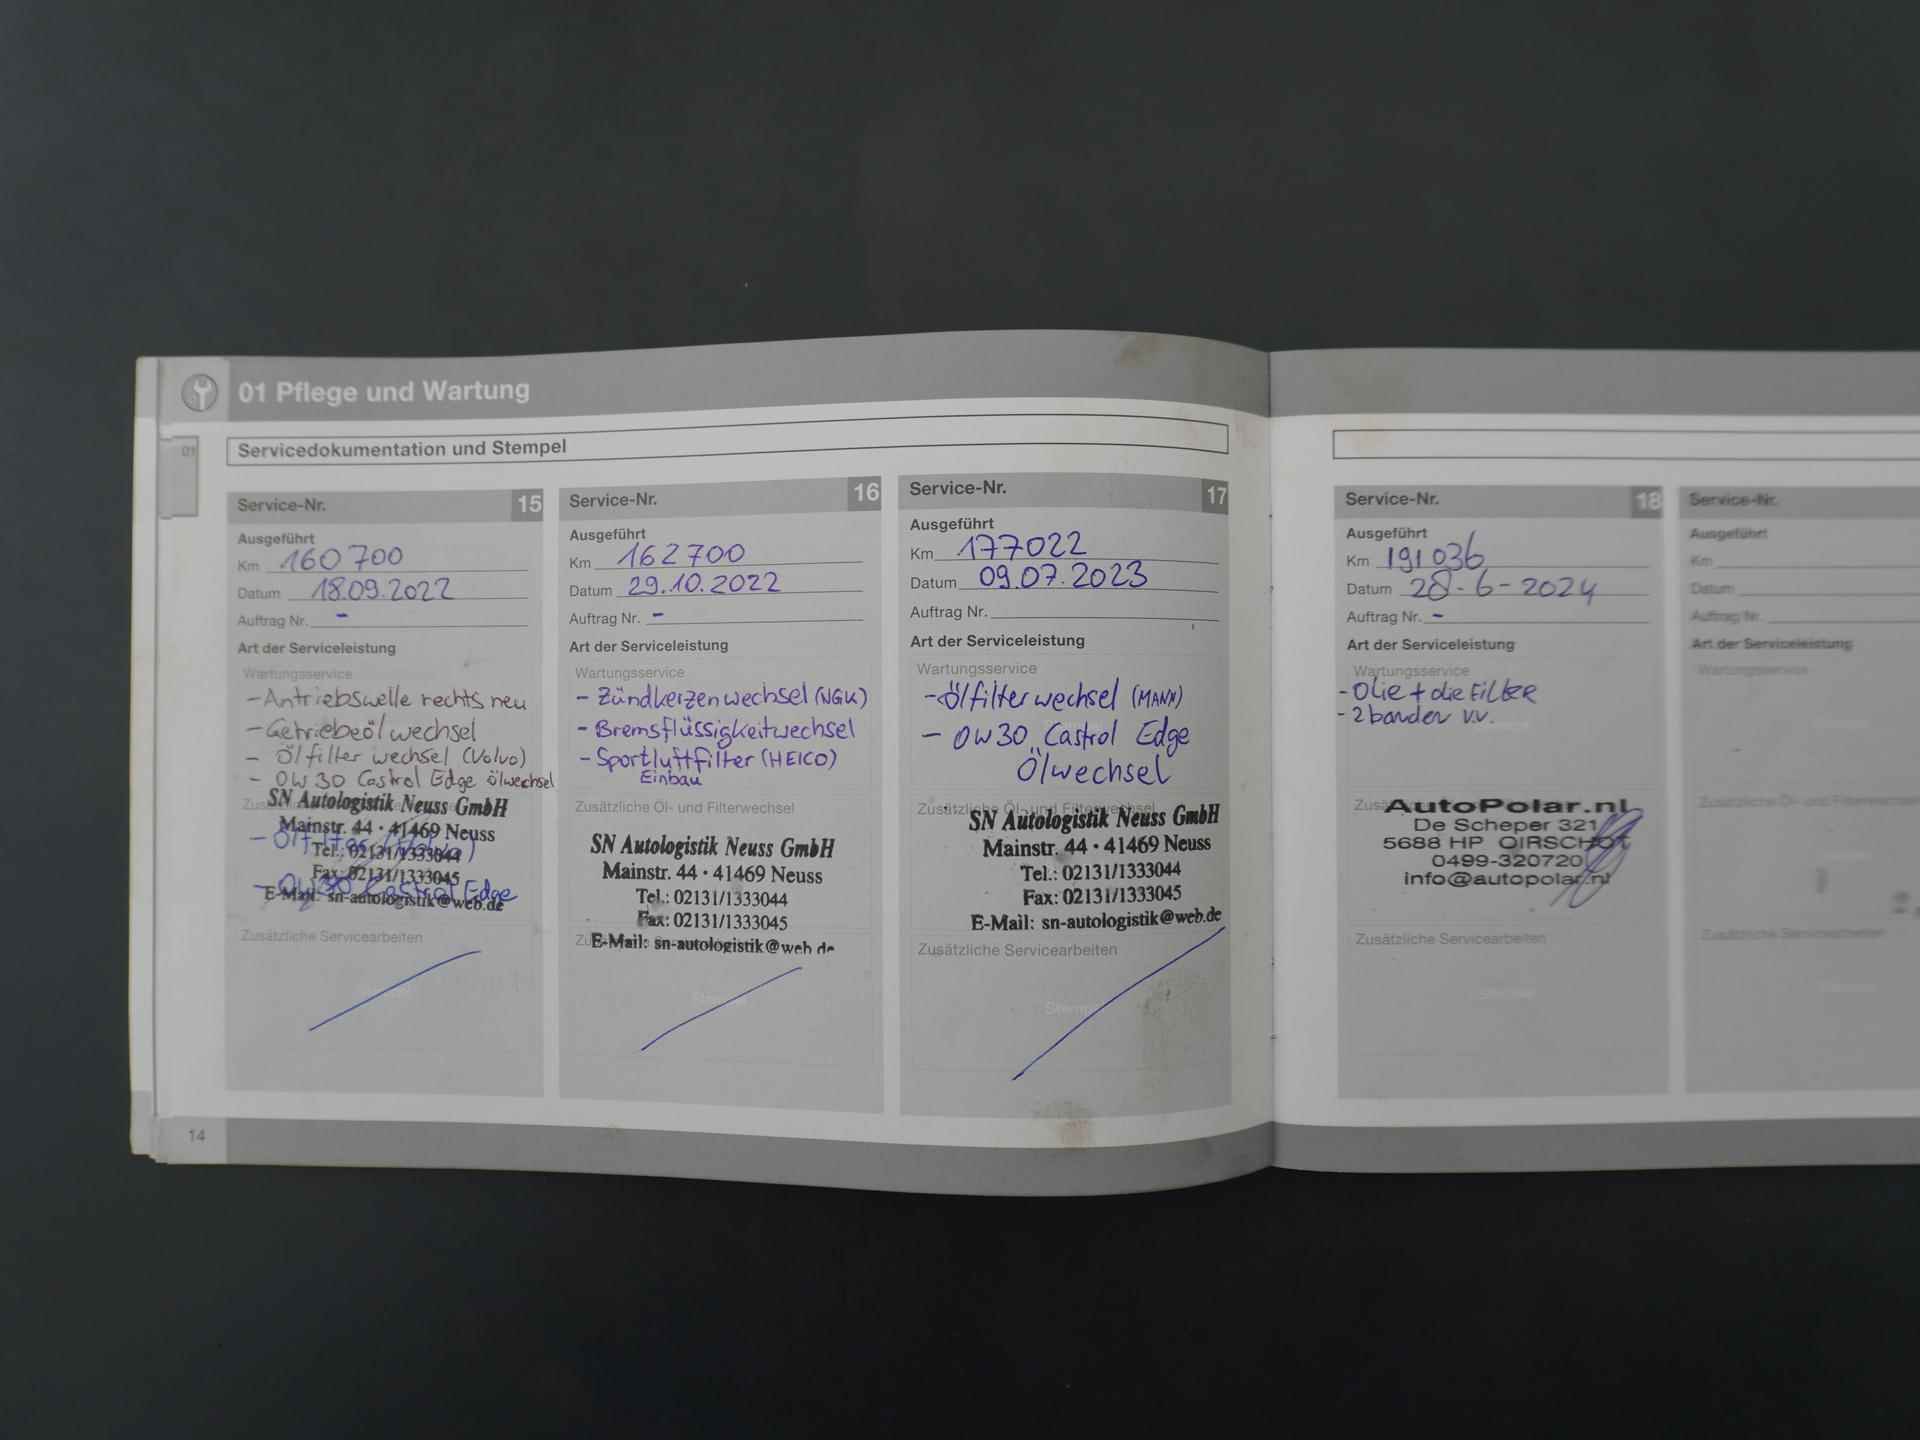 01 Pflege und Wartung
01
Servicedokumentation und Stempel
Service-Nr. 15
Ausgeführt
Km 160700
Datum 18.09.2022
Auftrag Nr. -
Art der Serviceleistung
Wartungsservice
- Antriebswelle rechts neu
- Getriebeöl wechsel
- Ölfilter wechsel (Volvo)
- 0W30 Castrol Edge ölwechsel
SN Autologistik Neuss GmbH
Mainstr. 44 · 41469 Neuss
- Ölfilter (Volvo)
Tel.: 02131/1333044
Fax: 02131/1333045
- 0W30 Castrol Edge
E-Mail: sn-autologistik@web.de
Zusätzliche Servicearbeiten
Service-Nr. 16
Ausgeführt
Km 162700
Datum 29.10.2022
Auftrag Nr. -
Art der Serviceleistung
Wartungsservice
- Zündkerzenwechsel (NGK)
- Bremsflüssigkeitwechsel
- Sportluftfilter (HEICO)
Einbau
Zusätzliche Öl- und Filterwechsel
SN Autologistik Neuss GmbH
Mainstr. 44 · 41469 Neuss
Tel.: 02131/1333044
Fax: 02131/1333045
E-Mail: sn-autologistik@web.de
Stempel
Service-Nr. 17
Ausgeführt
Km 177022
Datum 09.07.2023
Auftrag Nr.
Art der Serviceleistung
Wartungsservice
- Ölfilterwechsel (MANN)
- 0W30 Castrol Edge
Ölwechsel
Zusätzliche Öl- und Filterwechsel
SN Autologistik Neuss GmbH
Mainstr. 44 · 41469 Neuss
Tel.: 02131/1333044
Fax: 02131/1333045
E-Mail: sn-autologistik@web.de
Zusätzliche Servicearbeiten
Stempel
14
Service-Nr. 18
Ausgeführt
Km 191036
Datum 28-6-2024
Auftrag Nr. -
Art der Serviceleistung
Wartungsservice
- Olie + die Filter
- 2 banden v.v.
AutoPolar.nl
De Scheper 321
5688 HP OIRSCHOT
0499-320720
info@autopolar.nl
Zusätzliche Servicearbeiten
Stempel
Service-Nr.
Ausgeführt
Km
Datum
Auftrag Nr.
Art der Serviceleistung
Wartungsservice
Zusätzliche Öl- und Filterwechsel
Zusätzliche Servicearbeiten